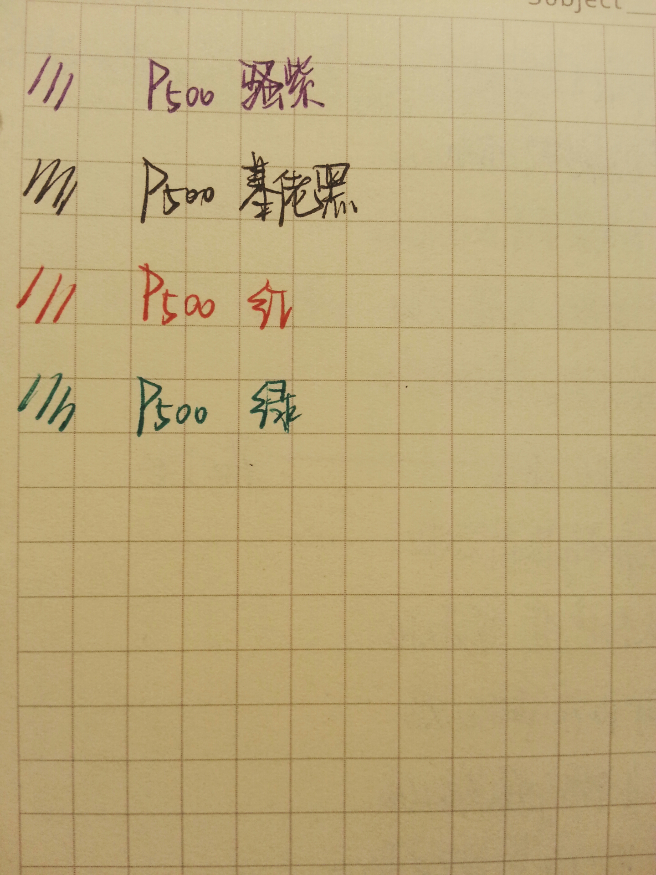 Subject
P500 骚紫
P500 基佬黑
P500 红
P500 绿